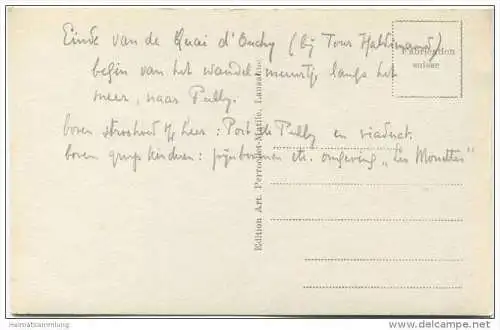 Einde van de Quai d'Ouchy (bij Tour Haldimand)
begin van het wandel langs het
meer, naar Pully.
boven : Port de Pully en viaduct.
boven kinderen: pijnbomen etc. omgeving „Les Mouettes"
Fabrication
suisse
Edition Art. Perrochet-Matile, Lausanne
heimatsammlung
delcampe.net